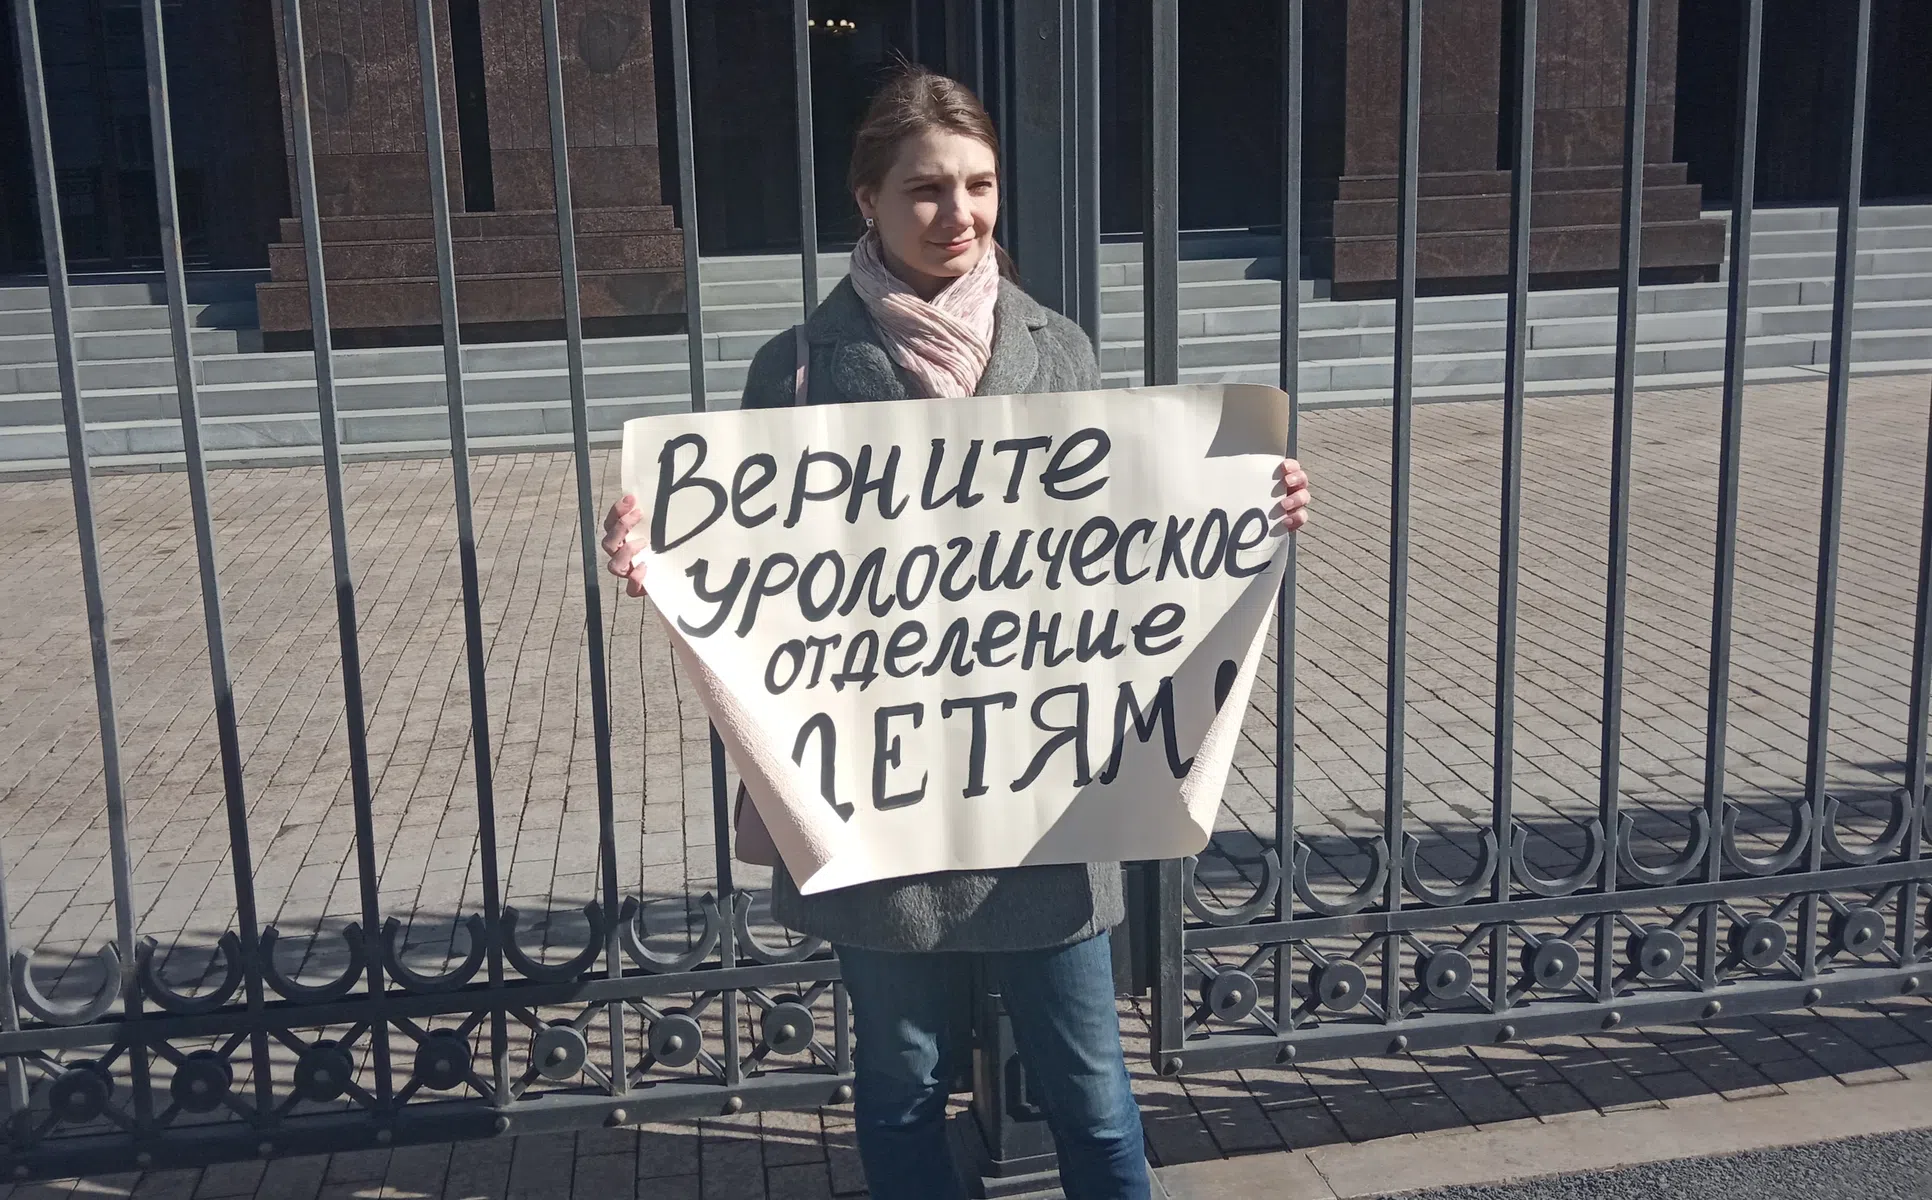 Верните
урологическое
отделение
ДЕТЯМ!